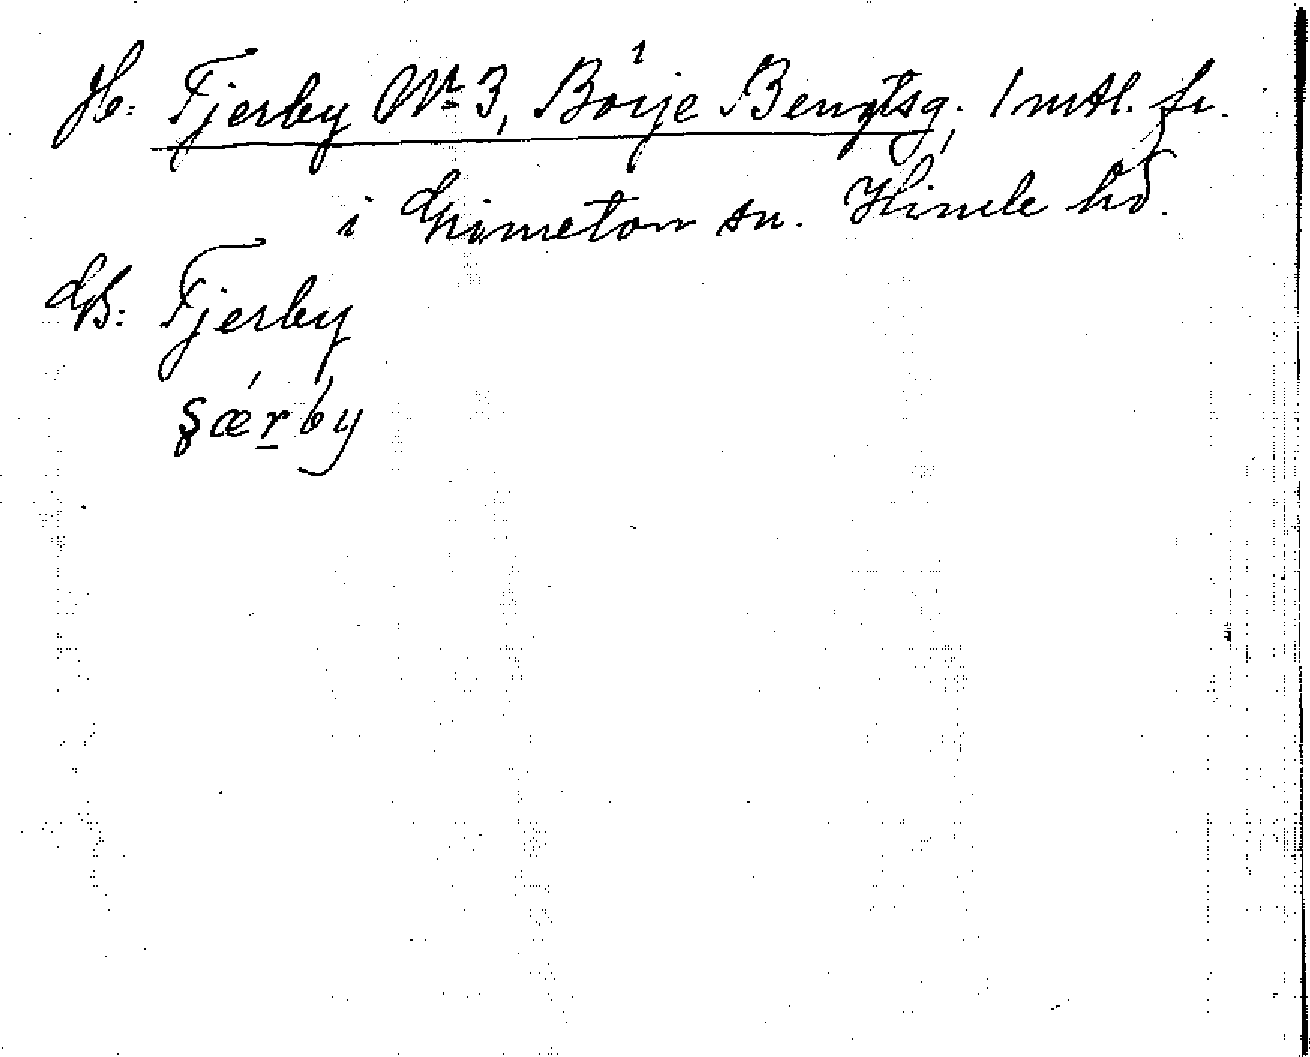 Hs: Fjerby No 3, Börje Bengtsg. 1 mtl. fr.
i Grimeton sn. Himle hd.
GB: Fjerby
şæ̀r̠by